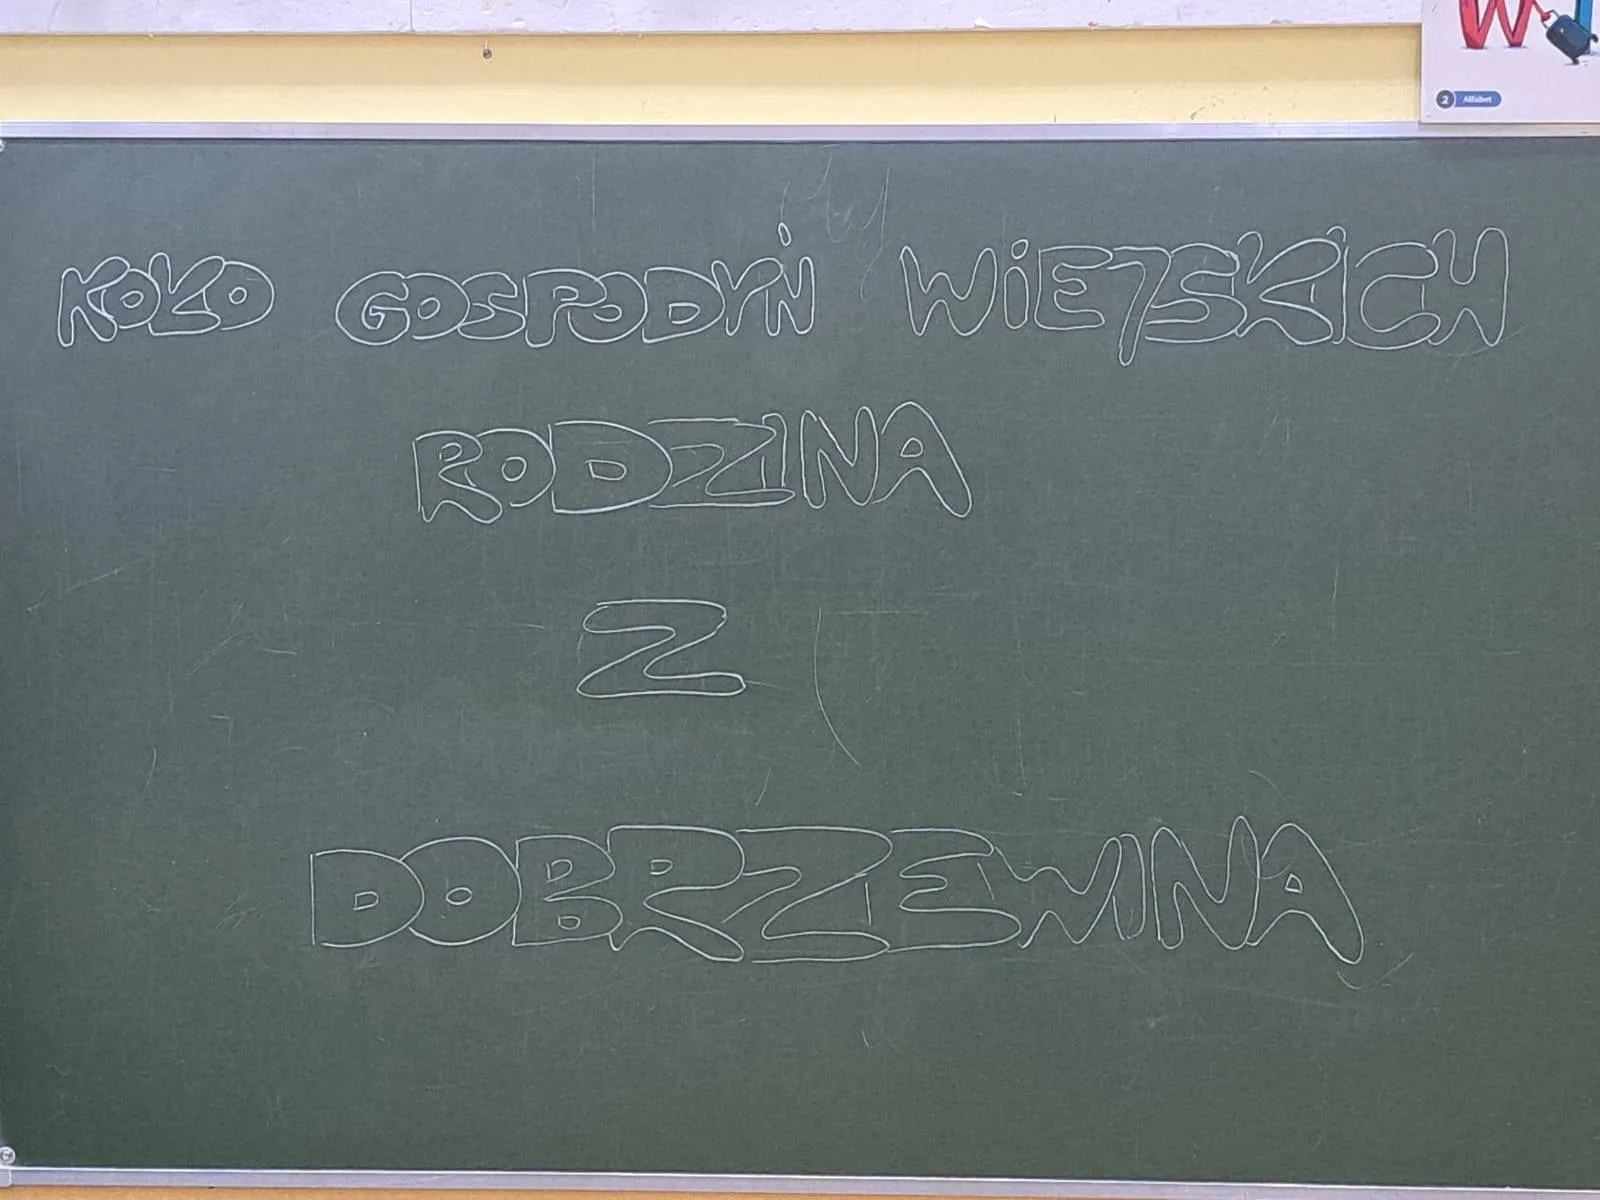 W
2 Alfabet
KOŁO GOSPODYŃ WIEJSKICH
RODZINA
Z
DOBRZEWINA